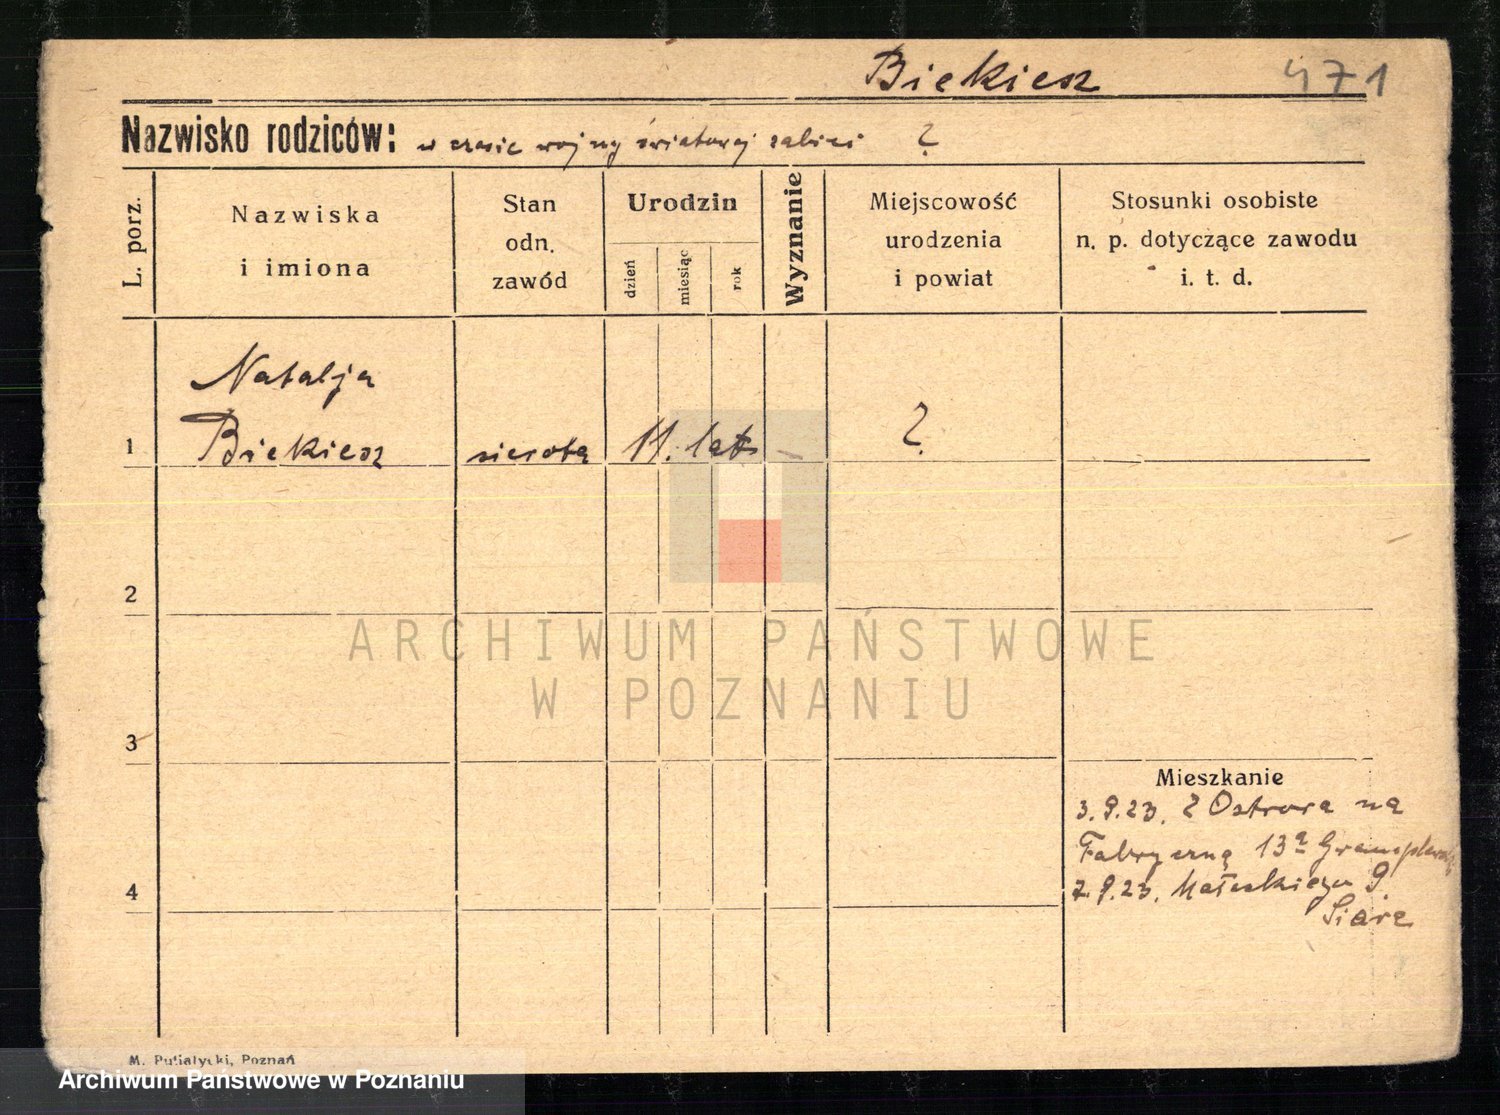 Biekiesz 471
Nazwisko rodziców: w czasie wojny światowej zabici ?
L. porz.
Nazwiska
i imiona
Stan
odn.
zawód
Urodzin
dzień
miesiąc
rok
Wyznanie
Miejscowość
urodzenia
i powiat
Stosunki osobiste
n. p. dotyczące zawodu
i. t. d.
Natalja
1 Biekiesz sierota 11. lat - ?
2
ARCHIWUM PAŃSTWOWE
W POZNANIU
3
Mieszkanie
3.9.23. Z Ostrowa na
Fabryczną 13a
4
7.9.23. Małeckiego 9.
M. Putiatycki, Poznań
Archiwum Państwowe w Poznaniu